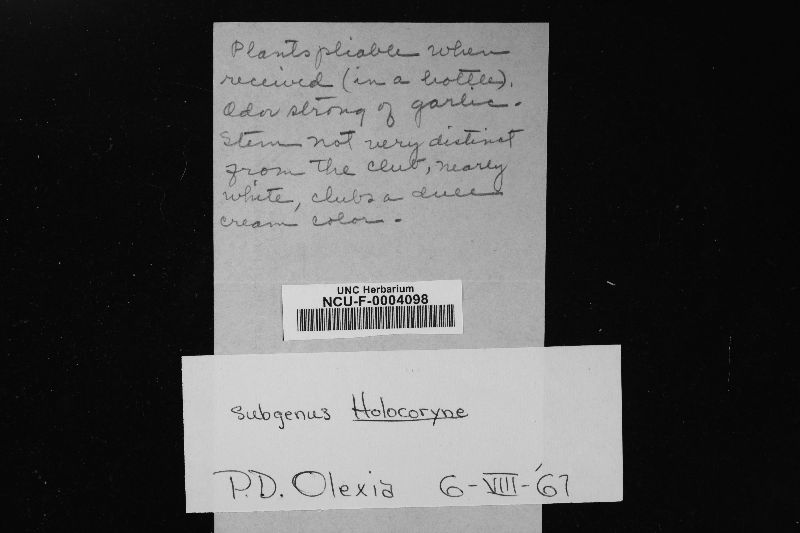 Plants pliable when
received (in a bottle).
Odor strong of garlic.
Stem not very distinct
from the club, nearly
white, clubs a dull
cream color.
UNC Herbarium
NCU-F-0004098
subgenus Holocoryne
P.D. Olexia 6-VIII-'67